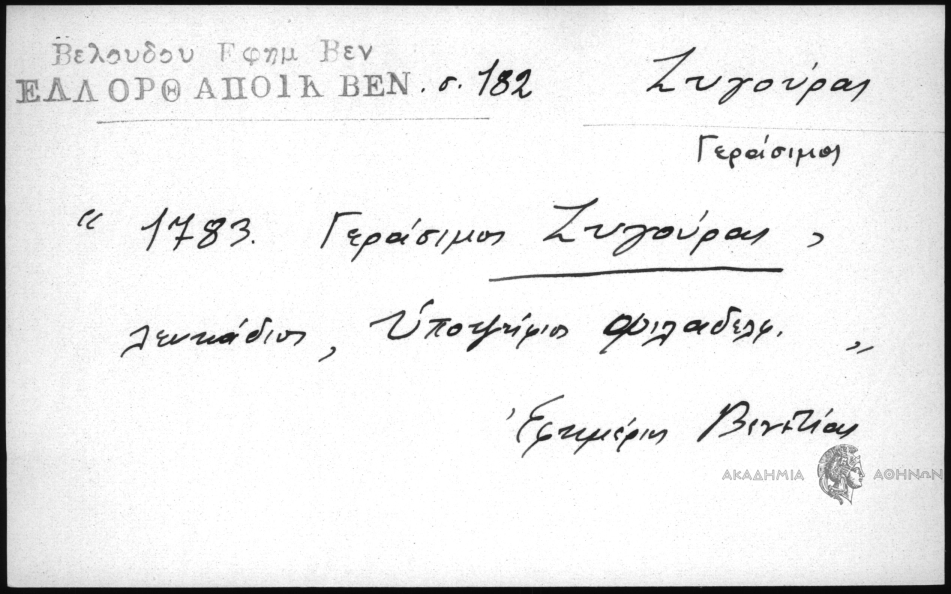 Βελουδου Εφημ Βεν
ΕΛΛ ΟΡΘ ΑΠΟΙΚ ΒΕΝ. σ. 182
Ζυγούρας
Γεράσιμος
“ 1783. Γεράσιμος Ζυγούρας,
Λευκάδιος, Ὑποψήφιος Φιλαδελφ. „
Ἐφημέριος Βενετίας
ΑΚΑΔΗΜΙΑ ΑΘΗΝΩΝ